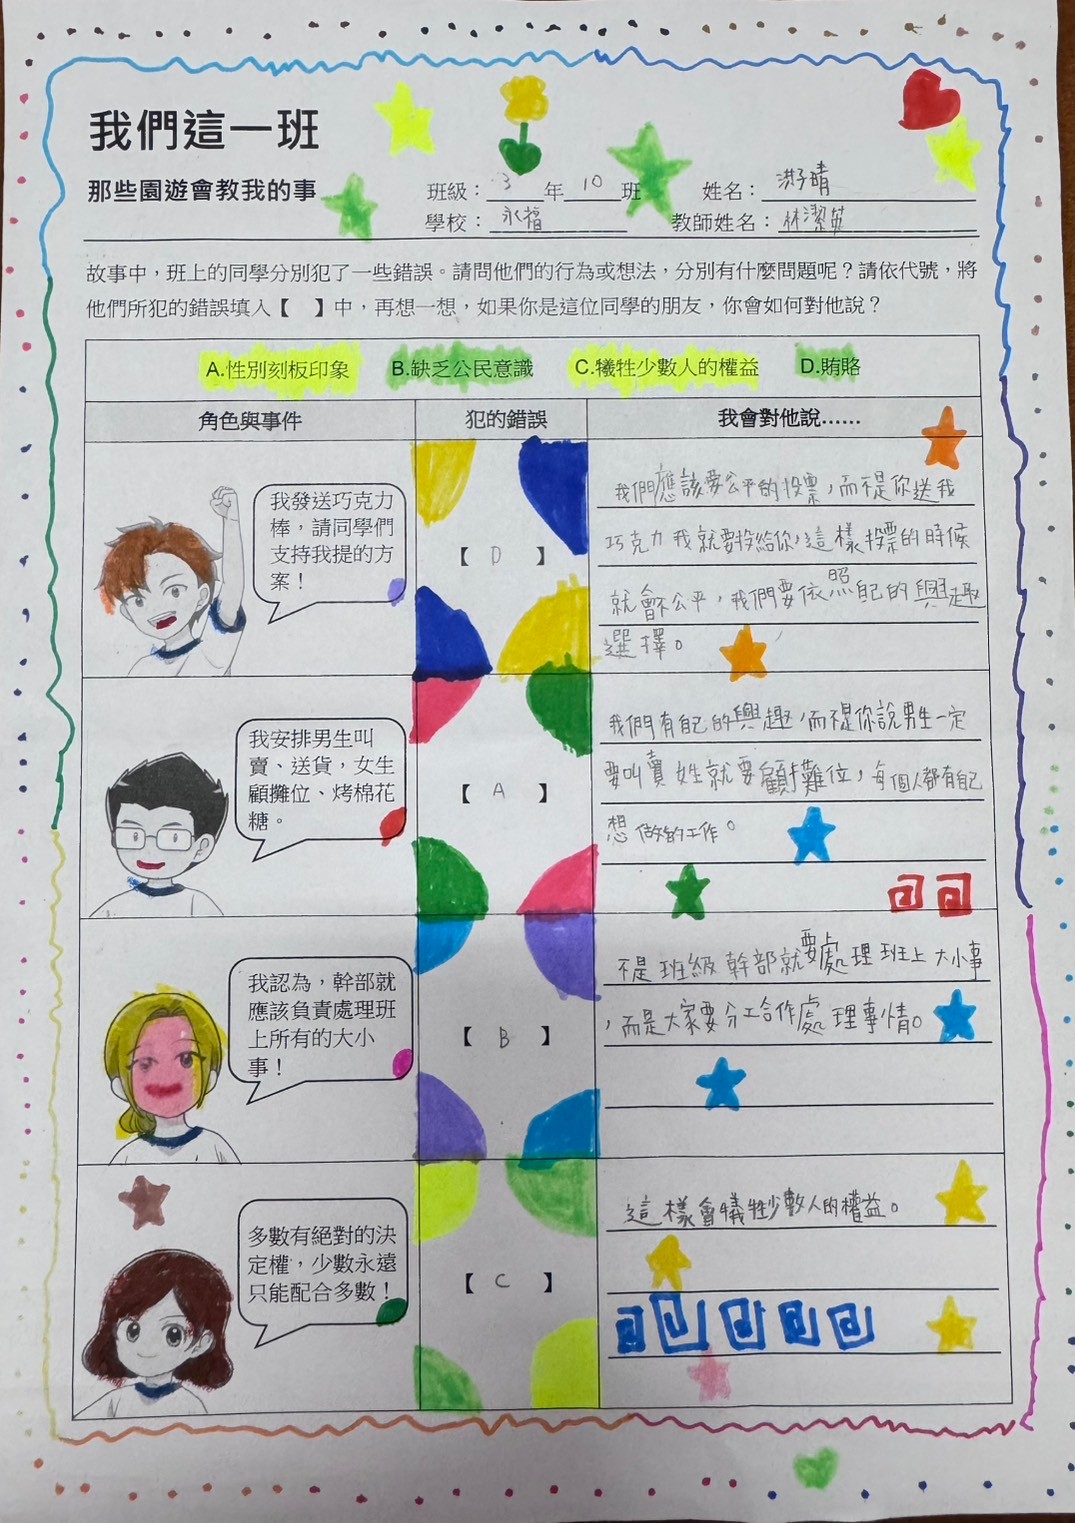 我們這一班
那些園遊會教我的事
班級：3年10班 姓名：洪子晴
學校：永福 教師姓名：林潔英
故事中，班上的同學分別犯了一些錯誤。請問他們的行為或想法，分別有什麼問題呢？請依代號，將
他們所犯的錯誤填入【 】中，再想一想，如果你是這位同學的朋友，你會如何對他說？
A.性別刻板印象 B.缺乏公民意識 C.犧牲少數人的權益 D.賄賂
角色與事件 犯的錯誤 我會對他說……
我發送巧克力
棒，請同學們
支持我提的方
案！
【 D 】
我們應該要公平的投票，而不是你送我
巧克力我就要投給你，這樣投票的時候
就會不公平，我們要依照自己的興趣
選擇。
我安排男生叫
賣、送貨，女生
顧攤位、烤棉花
糖。
【 A 】
我們有自己的興趣，而不是你說男生一定
要叫賣 女生就要顧攤位，每個人都有自己
想做的工作。
我認為，幹部就
應該負責處理班
上所有的大小
事！
【 B 】
不是班級幹部就要處理班上大小事
，而是大家要分工合作處理事情。
多數有絕對的決
定權，少數永遠
只能配合多數！
【 C 】
這樣會犧牲少數人的權益。